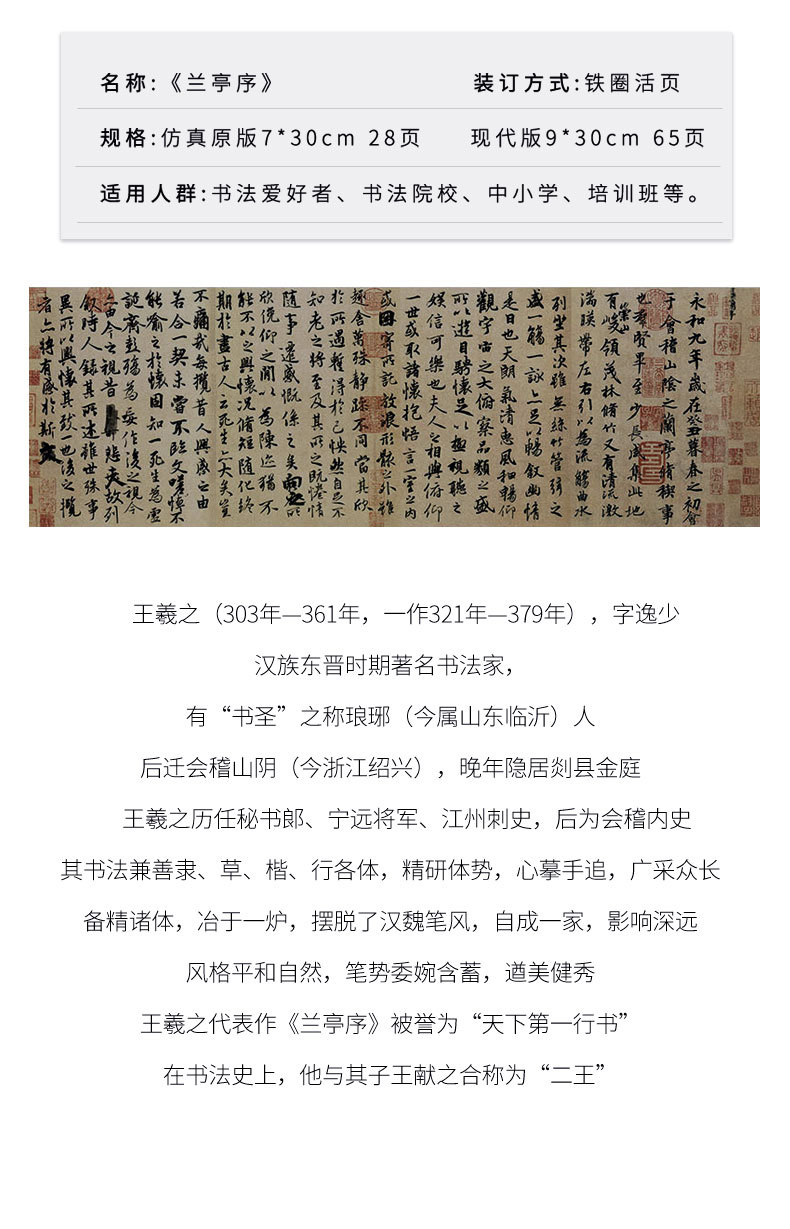 名称:《兰亭序》
装订方式:铁圈活页
规格:仿真原版7*30cm 28页
现代版9*30cm 65页
适用人群:书法爱好者、书法院校、中小学、培训班等。
永和九年歲在癸丑暮春之初會
于會稽山陰之蘭亭脩稧事
也羣賢畢至少長咸集此地
有崇山峻領茂林脩竹又有清流激
湍暎帶左右引以為流觴曲水
列坐其次雖無絲竹管弦之
盛一觴一詠亦足以暢敘幽情
是日也天朗氣清惠風和暢仰
觀宇宙之大俯察品類之盛
所以遊目騁懷足以極視聽之
娛信可樂也夫人之相與俯仰
一世或取諸懷抱悟言一室之內
或因寄所託放浪形骸之外雖
趣舍萬殊靜躁不同當其欣
於所遇暫得於己怏然自足不
知老之將至及其所之既惓情
隨事遷感慨係之矣向之所
欣俛仰之閒以為陳迹猶不
能不以之興懷況脩短隨化終
期於盡古人云死生亦大矣豈
不痛哉每攬昔人興感之由
若合一契未嘗不臨文嗟悼不
能喻之於懷固知一死生為虛
誕齊彭殤為妄作後之視今
亦由今之視昔悲夫故列
敘時人錄其所述雖世殊事
異所以興懷其致一也後之攬
者亦將有感於斯文
王羲之（303年—361年，一作321年—379年），字逸少
汉族东晋时期著名书法家，
有“书圣”之称琅琊（今属山东临沂）人
后迁会稽山阴（今浙江绍兴），晚年隐居剡县金庭
王羲之历任秘书郞、宁远将军、江州刺史，后为会稽内史
其书法兼善隶、草、楷、行各体，精研体势，心摹手追，广采众长
备精诸体，冶于一炉，摆脱了汉魏笔风，自成一家，影响深远
风格平和自然，笔势委婉含蓄，遒美健秀
王羲之代表作《兰亭序》被誉为“天下第一行书”
在书法史上，他与其子王献之合称为“二王”